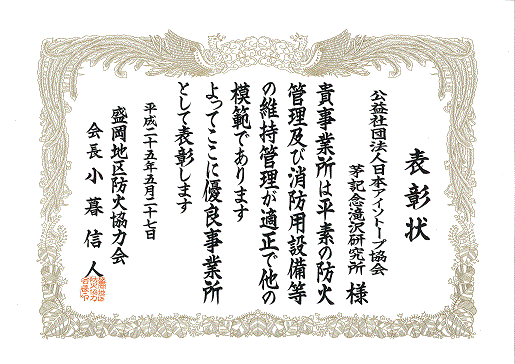 表彰状
公益社団法人日本アイソトープ協会
茅記念滝沢研究所 様
貴事業所は平素の防火
管理及び消防用設備等
の維持管理が適正で他の
模範であります
よってここに優良事業所
として表彰します
平成二十五年五月二十七日
盛岡地区防火協力会
会長 小暮信人